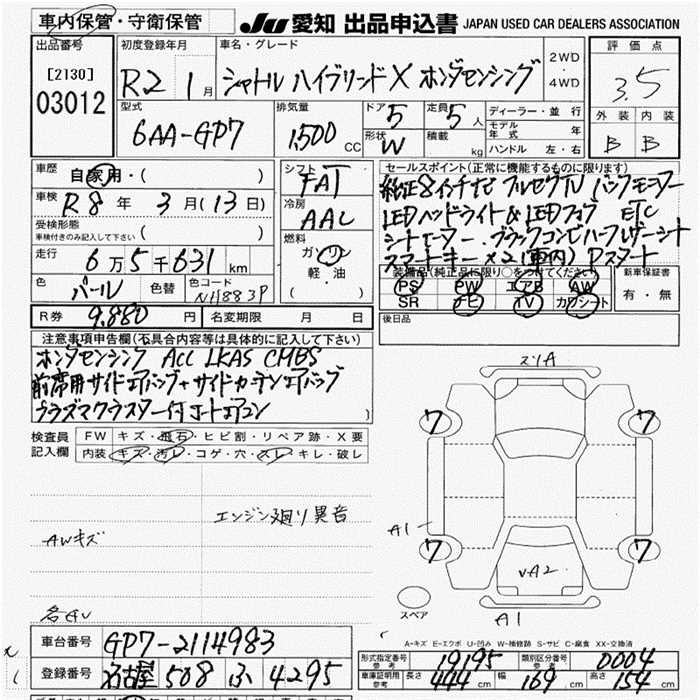 車内保管・守衛保管
JU 愛知 出品申込書 JAPAN USED CAR DEALERS ASSOCIATION
出品番号
[2130]
03012
初度登録年月
R2 1月
車名・グレード
シャトル ハイブリッド X ホンダセンシング
2WD
・
4WD
評価点
3.5
外装 内装
B B
型式
6AA-GP7
排気量
1,500 CC
ドア 5
形状 W
定員 5 人
積載 kg
ディーラー・並行
モデル年式 年
ハンドル 左・右
車歴
自家用・( )
車検
R8年 3月(13日)
受検形態
車検付きのみ記入して下さい ( )
走行
6万5千631km
色 パール 色替 色コード NH883P
シフト
FAT
冷房
AAC
燃料
ガソリン
軽油
( )
セールスポイント(正常に機能するものに限ります)
純正8インチナビ フルセグTV バックモニター
LEDヘッドライト&LEDフォグ ETC
シートヒーター・ブラックコンビハーフレザーシート
スマートキー×2(車内) Pスタート
装備品(純正品に限り○をつけてください)
PS PW エアB AW
SR ナビ TV カワシート
新車保証書
有・無
R券 9,880円 名変期限 月 日
後日品
注意事項申告欄(不具合内容等は具体的に記入して下さい)
ホンダセンシング ACC LKAS CMBS
前席用サイドエアバッグ+サイドカーテンエアバッグ
プラズマクラスター付オートエアコン
検査員記入欄
FW キズ・飛石・ヒビ割・リペア跡・X要
内装 キズ・汚レ・コゲ・穴・スレ・キレ・破レ
エンジン廻り異音
AWキズ
スリA
7 7
A1
7 7
VA2
スペア
A1
A-キズ E-エクボ U-凹み W-補修跡 S-サビ C-腐食 XX-交換済
車台番号 GP7-2114983
登録番号 名古屋 508 ふ 4295
形式指定番号 参考 19195 類別区分番号 参考 0004
車庫証明用 参考 長さ 444cm 幅 169cm 高さ 154cm